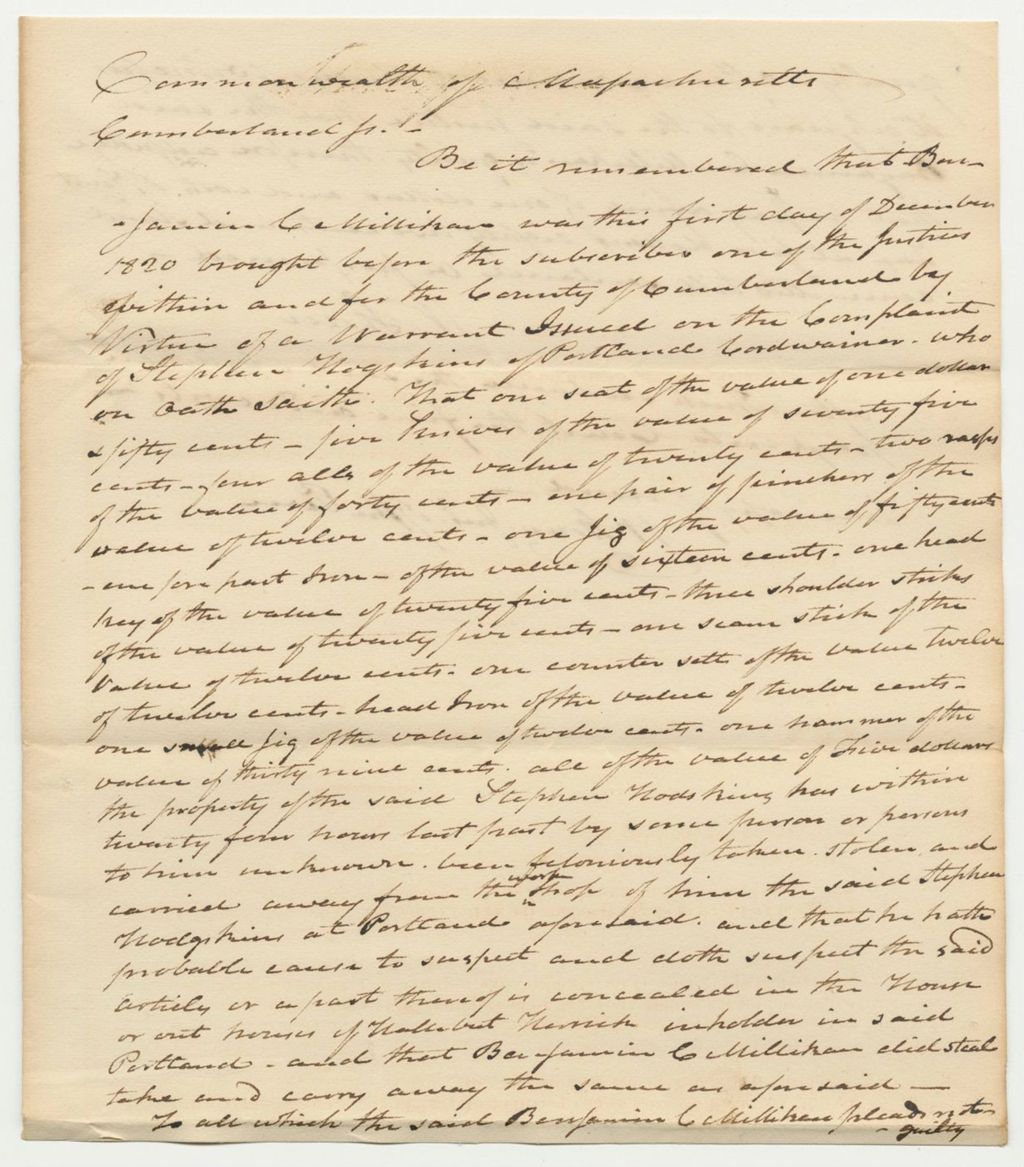 Commonwealth of Massachusetts
Cumberland ss. -
Be it remembered that Ben-
-jamin C Millikan was this first day of December
1820 brought before the subscriber one of the Justices
within and for the County of Cumberland by
Virtue of a Warrant Issued on the Complaint
of Stephen Hogskins of Portland Cordwainer. who
on oath saith. That one seat of the value of one dollar
& fifty cents - five knives of the value of seventy five
cents - four alls of the value of twenty cents - two rasps
of the value of forty cents - one pair of pinchers of the
value of twelve cents - one Jig of the value of fifty cents
- one fore part Iron - of the value of sixteen cents. one head
key of the value of twenty five cents - three shoulder sticks
of the value of twenty five cents - one seam stick of the
value of twelve cents. one counter sett of the value twelve
of twelve cents - head Iron of the value of twelve cents -
one small Jig of the value of twelve cents. one hammer of the
value of thirty nine cents. all of the value of Five dollars
the property of the said Stephen Hodskins has within
twenty four hours last past by some person or persons
to him unknown. been feloniously taken. stolen and
carried away from the work shop of him the said Stephen
Hodgskins at Portland aforesaid. and that he hath
probable cause to suspect and doth suspect the said
articles or a part thereof is concealed in the House
or out houses of Herrick inholder in said
Portland - and that Benjamin C Millikan did steal
take and carry away the same as aforesaid —
To all which the said Benjamin C Millikan pleads not
- guilty